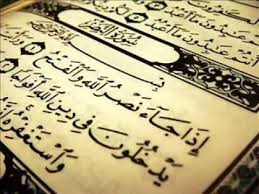 أَنتُمْ عَٰبِدُونَ مَآ أَعْبُدُ
سُورَةُ النَّصْرِ
إِذَا جَآءَ نَصْرُ ٱللَّهِ وَٱلْفَتْحُ
يَدْخُلُونَ فِى دِينِ ٱللَّهِ أَفْوَاجًا
وَٱسْتَغْفِرْهُ